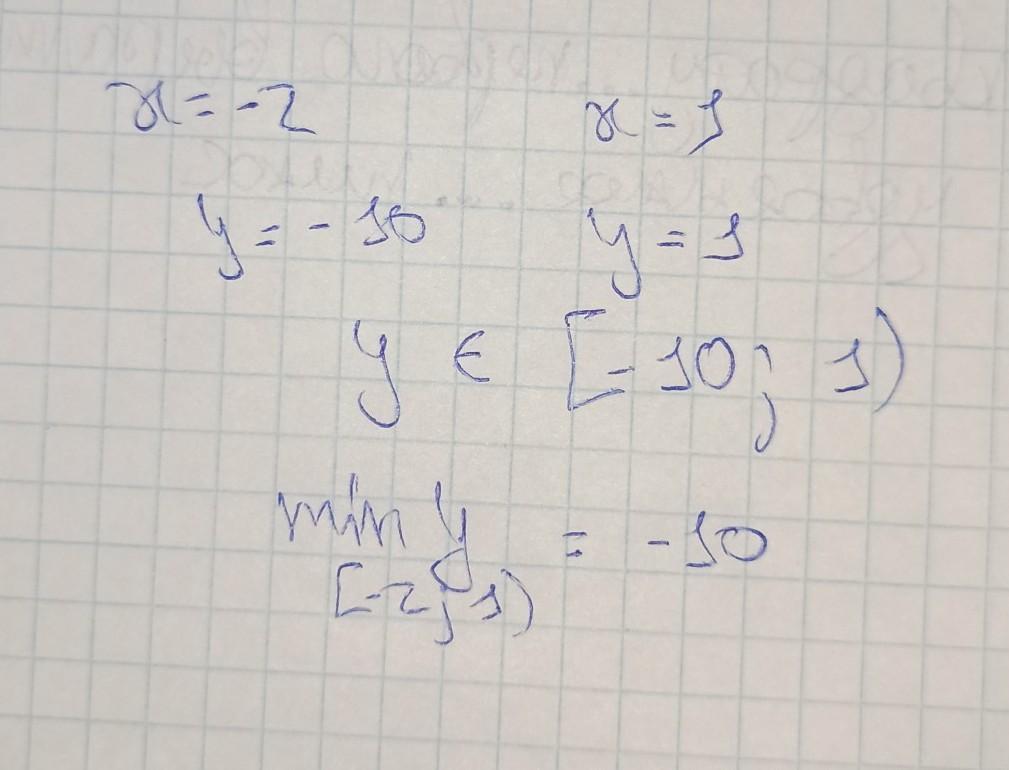 x = -2 x = 1
y = - 10 y = 1
y ∈ [-10; 1)
min y = -10
[-2; 1)